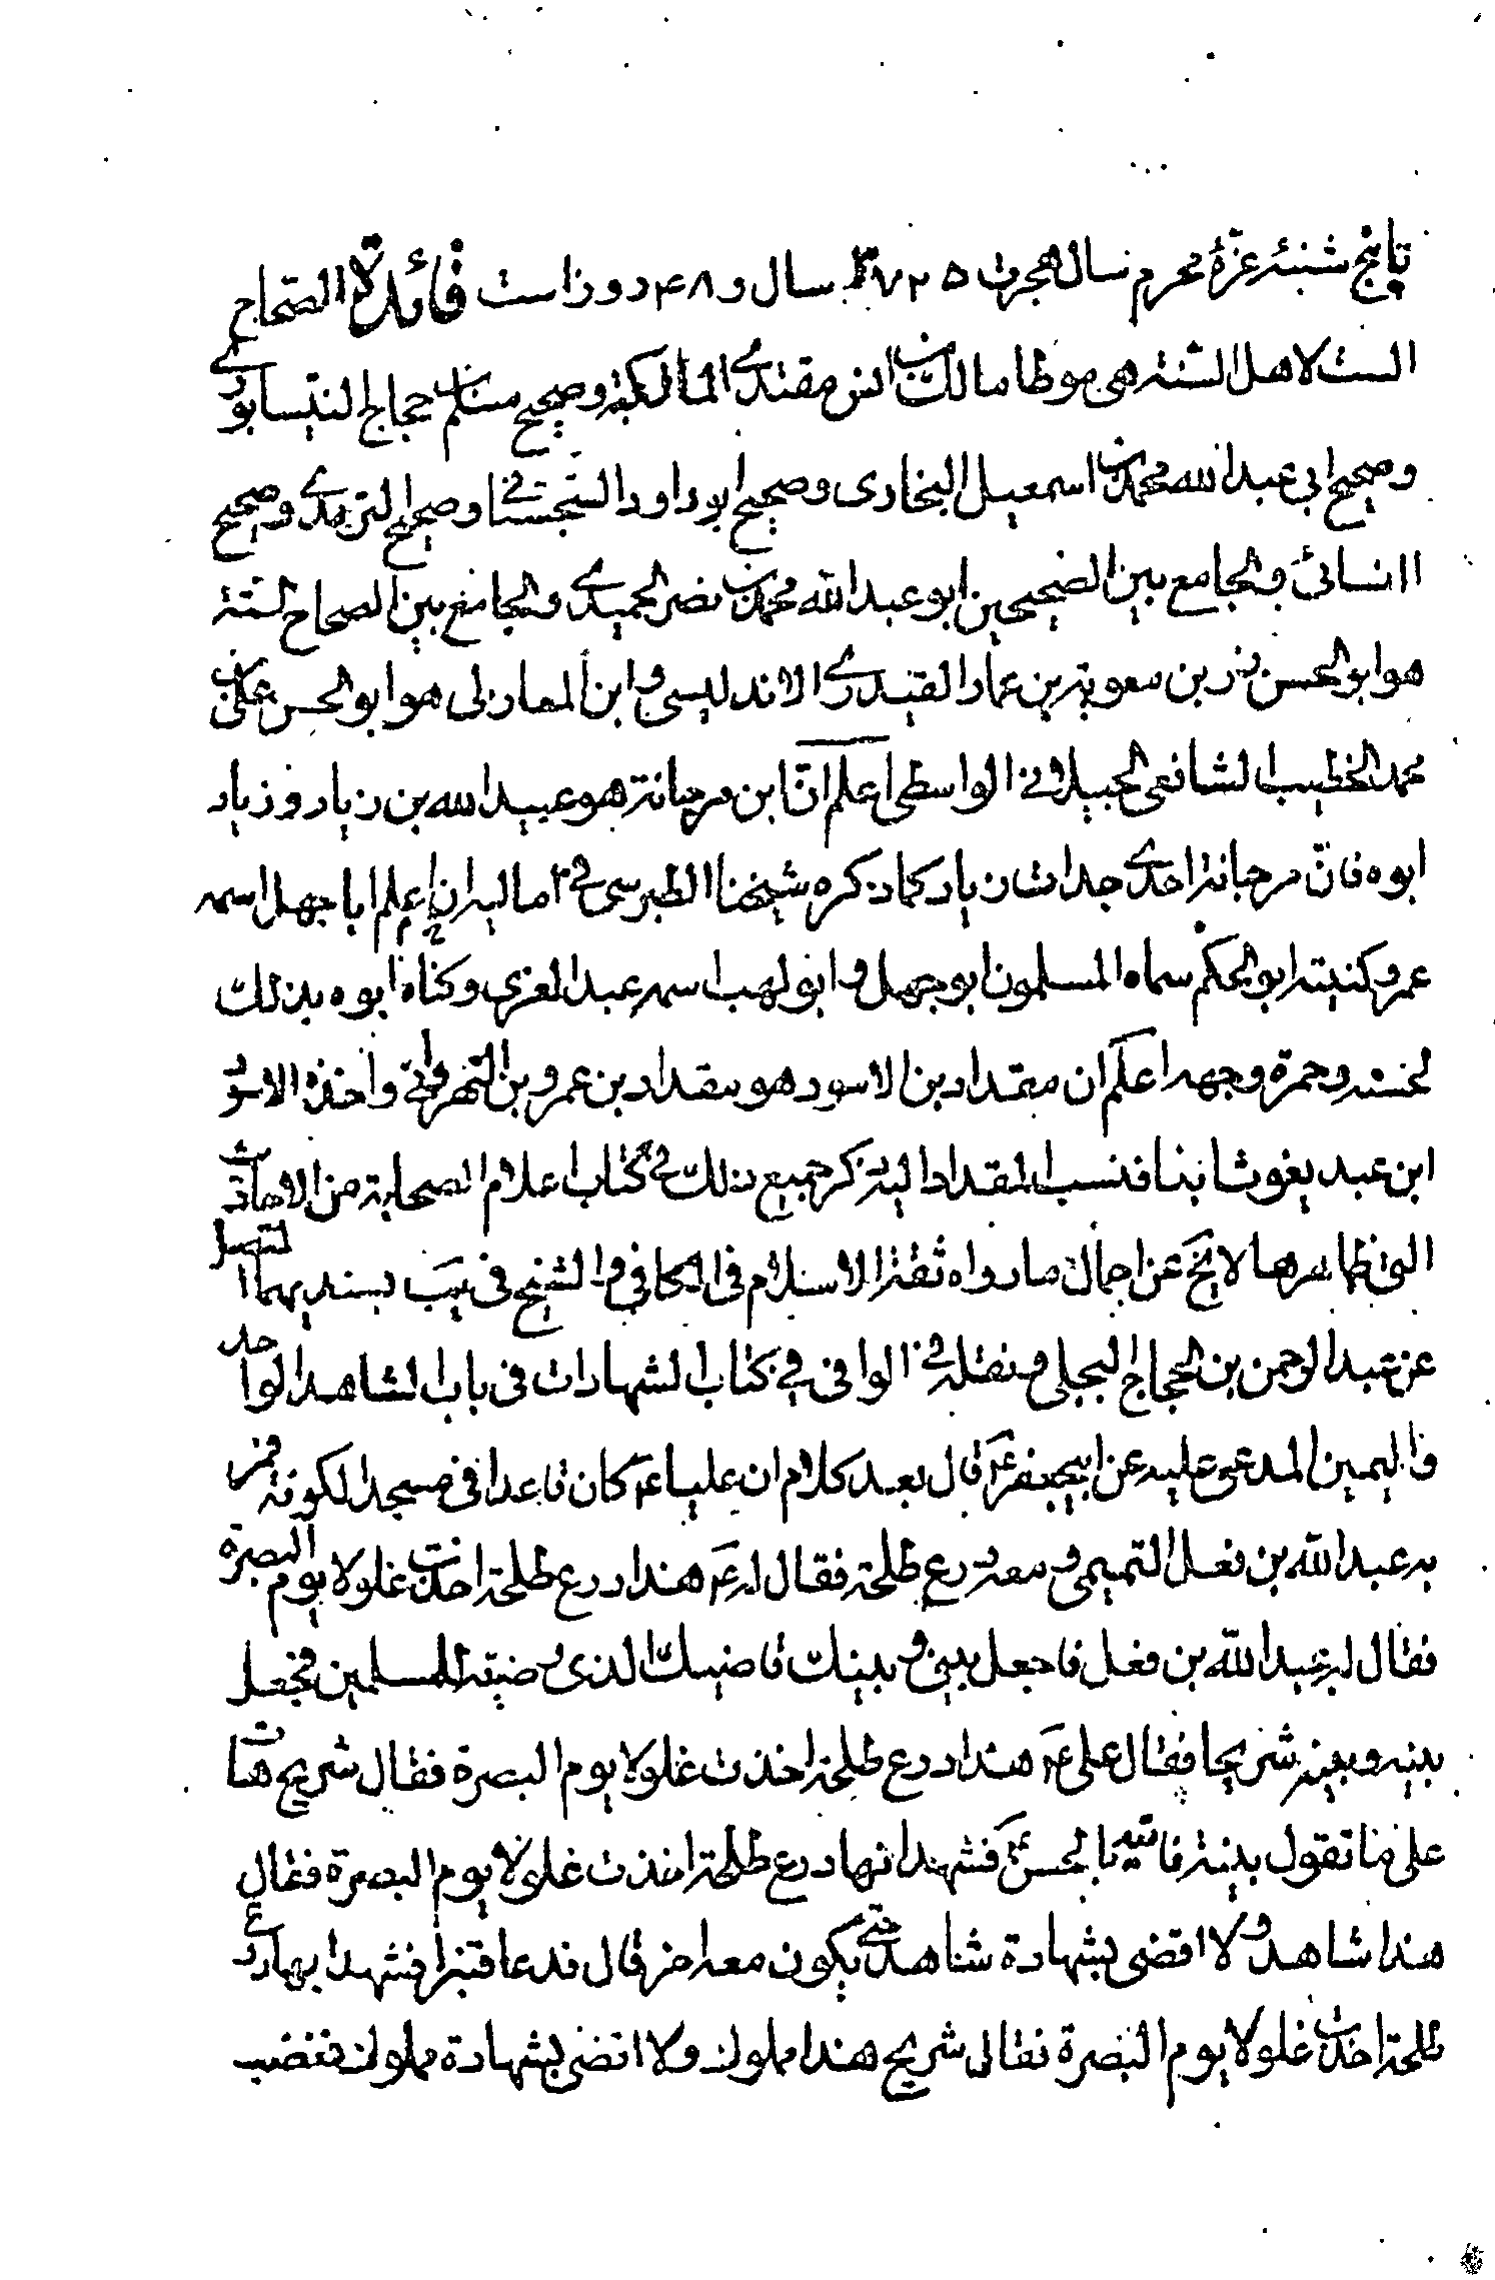 تا پنج شنبهٔ غرّهٔ محرم سال هجرت ۳۷۲۵ سال و ۴۸ روز است فائدة الصحاح
الست لاهل السنة هی موطا مالك بن انس مقتدی المالكیة و صحیح مسلم بن حجاج النیسابوری
و صحیح ابی عبد الله محمد بن اسمعیل البخاری و صحیح ابو داود السجستانی و صحیح الترمدی و صحیح
النسائی و الجامع بین الصحیحین ابو عبد الله محمد بن نصر الحمیدی و الجامع بین الصحاح الستة
هو ابو الحسن رزین بن معویة بن عمار العبدری الاندلیسی و ابن المغازلی هو ابو الحسن علی بن
محمد الخطیب الشافعی الجیلانی الواسطی اعلم انّ ابن مرجانة هو عبید الله بن زیاد و زیاد
ابوه فانّ مرجانة احدی جدات زیاد كما ذكره شیخنا الطبرسی فی امالیه ان اعلم ابا جهل اسمه
عمرو كنیته ابو الحكم سماه المسلمون ابو جهل و ابو لهب اسمه عبد العزی و كناه ابوه بذلك
لحسنه و حمرة وجهه اعلم ان مقداد بن الاسود هو مقداد بن عمرو بن النهروانی و اخذه الاسود
ابن عبد یغوث ابنا فنسب المقداد الیه ذكر جمیع ذلك فی كتاب اعلام الصحابة من الاحادیث
التی ظاهرها لا یخ عن اجمال ما رواه ثقة الاسلام فی الكافی و الشیخ فی یب بسندیهما المتصل
عن عبد الرحمن بن الحجاج البجلی و نقله فی الوافی فی كتاب الشهادات فی باب الشاهد الواحد
و الیمین المدعی علیه عن ابیجعفر ع قال بعد كلام ان علیا ع كان قاعدا فی مسجد الكوفة فمر
به عبد الله بن فعل التمیمی و معه درع طلحة فقال له ع هذا درع طلحة اخذت غلولا یوم البصرة
فقال له عبد الله بن فعل فاجعل بینی و بینك قاضیك الذی رضیته للمسلمین فجعل
بینه و بینه شریحا فقال علی ع هذا درع طلحة اخذت غلولا یوم البصرة فقال شریح هات
علی ما تقول بینة فاتیه بالحسن ع فشهد انها درع طلحة اخذت غلولا یوم البصرة فقال
هذا شاهد و لا اقضی بشهادة شاهد حتی یكون معه اخر قال فدعا قنبرا فشهد ابها درع
طلحة اخذت غلولا یوم البصرة فقال شریح هذا مملوك و لا اقضی بشهادة مملوك فغضب